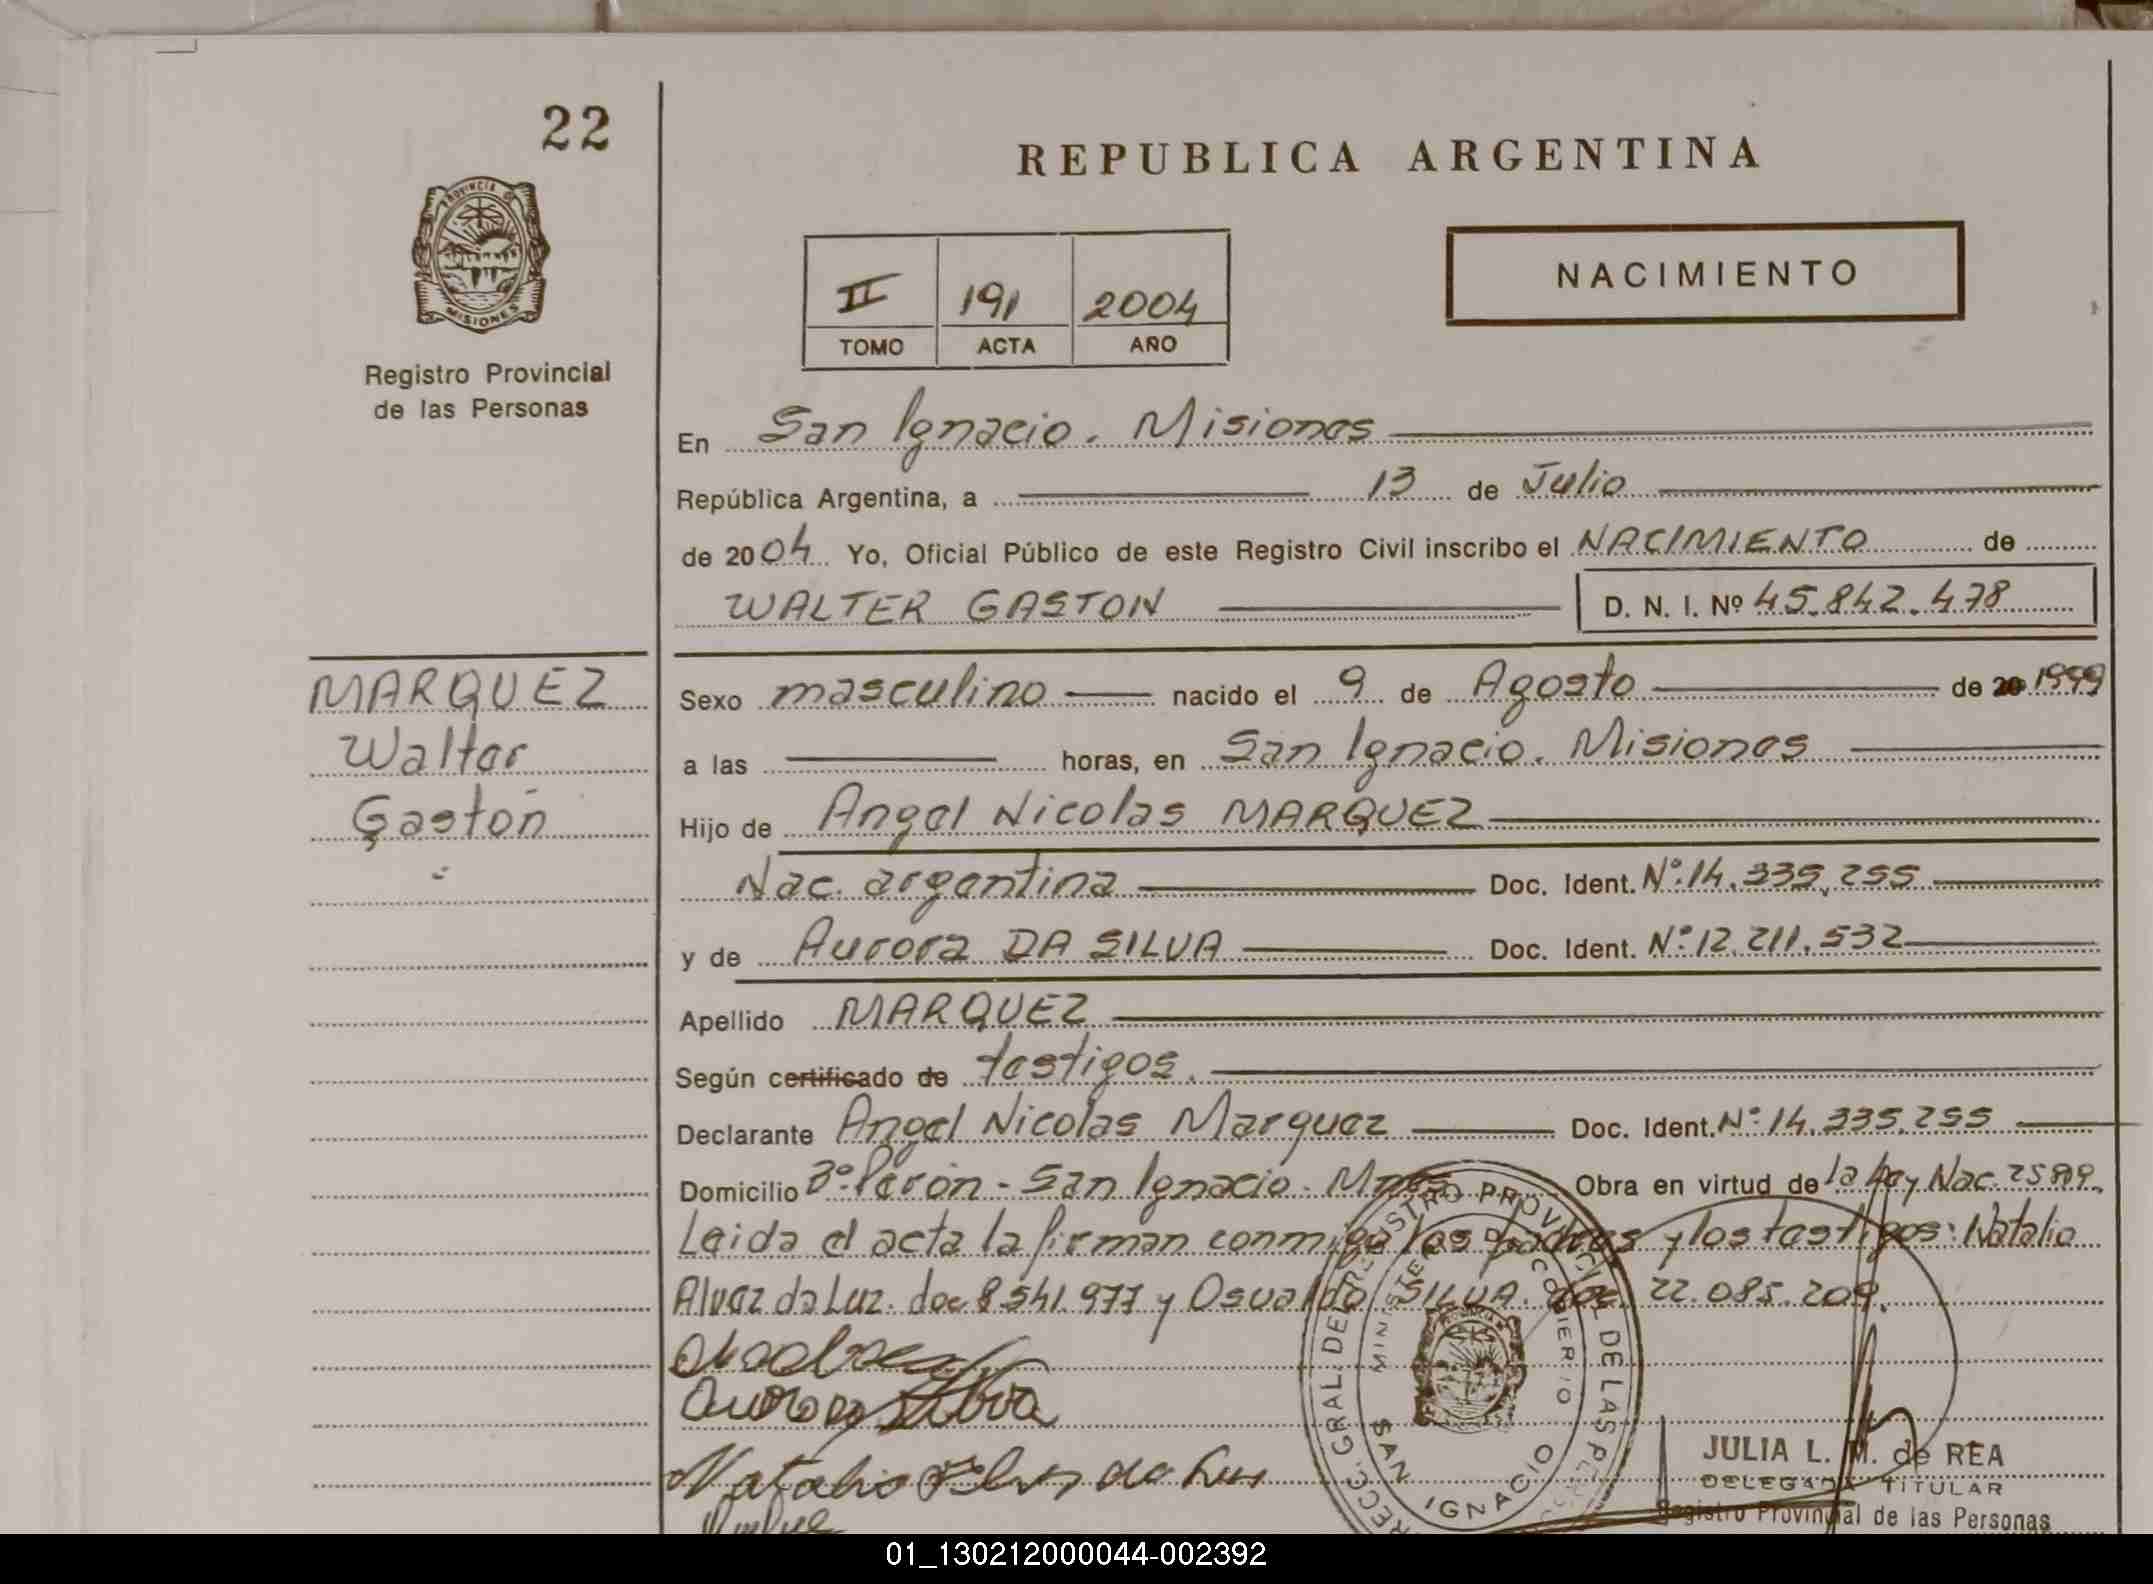 22
PROVINCIA DE
MISIONES
Registro Provincial
de las Personas
REPUBLICA ARGENTINA
II 191 2004
TOMO ACTA AÑO
NACIMIENTO
En San Ignacio. Misiones
República Argentina, a 13 de Julio
de 2004 Yo, Oficial Público de este Registro Civil inscribo el NACIMIENTO de
WALTER GASTON D. N. I. Nº 45.842.478
MARQUEZ
Walter
Gastón
Sexo masculino nacido el 9 de Agosto de 20 1999
a las horas, en San Ignacio. Misiones
Hijo de Angel Nicolas MARQUEZ
Nac. argentina Doc. Ident. Nº:14.335.255
y de Aurora DA SILVA Doc. Ident. Nº:12.211.532
Apellido MARQUEZ
Según certificado de testigos.
Declarante Angel Nicolas Marquez Doc. Ident. Nº:14.335.255
Domicilio Bº:Perón - San Ignacio - Mnes Obra en virtud de la Ley Nac. 25
Leida el acta la firman conmigo los padres y los testigos: Natalio
Alvez da Luz. doc 8541.977 y Osvaldo SILVA. doc 22.085.209.
Aurora Silva
Natalio Alves da Lus
DIRECC. GRAL. DEL REGISTRO PROVINCIAL DE LAS PERSONAS
MINISTERIO DE GOBIERNO
SAN IGNACIO
JULIA L. M. de REA
DELEGADA TITULAR
Registro Provincial de las Personas
01_130212000044-002392